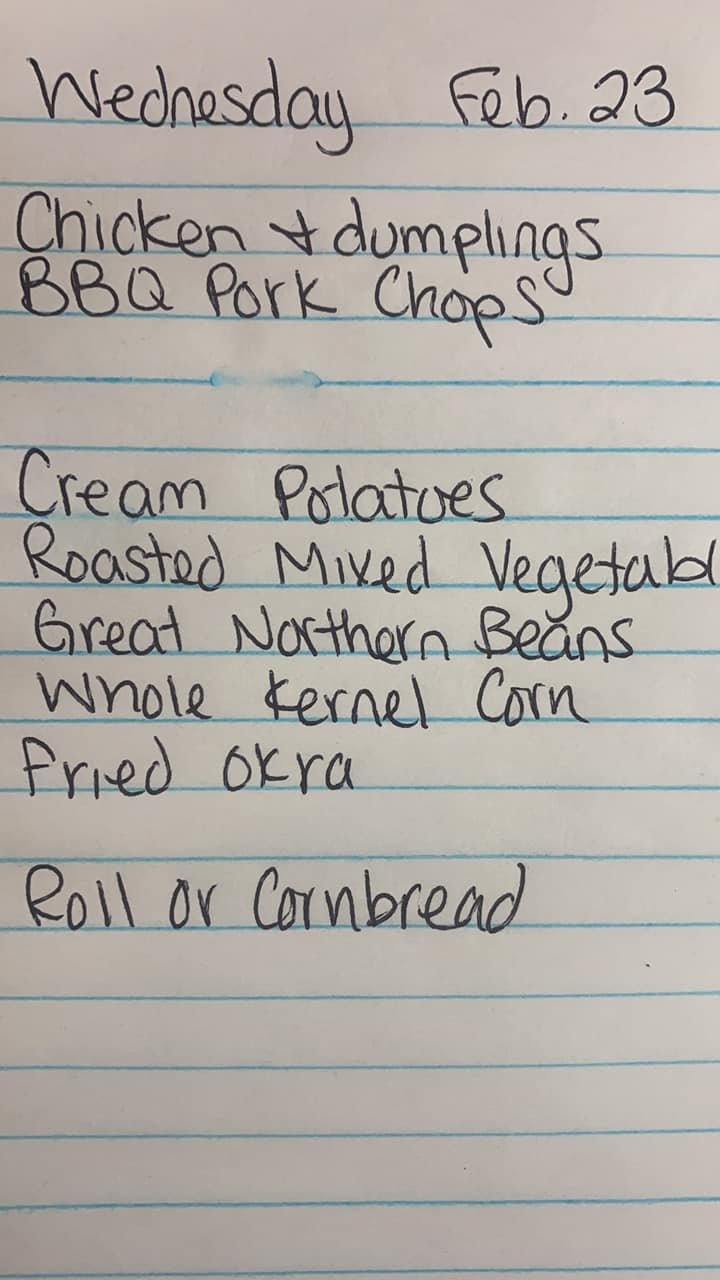 Wednesday Feb. 23
Chicken & dumplings
BBQ Pork Chops
Cream Potatoes
Roasted Mixed Vegetabl
Great Northern Beans
Whole Kernel Corn
Fried Okra
Roll or Cornbread